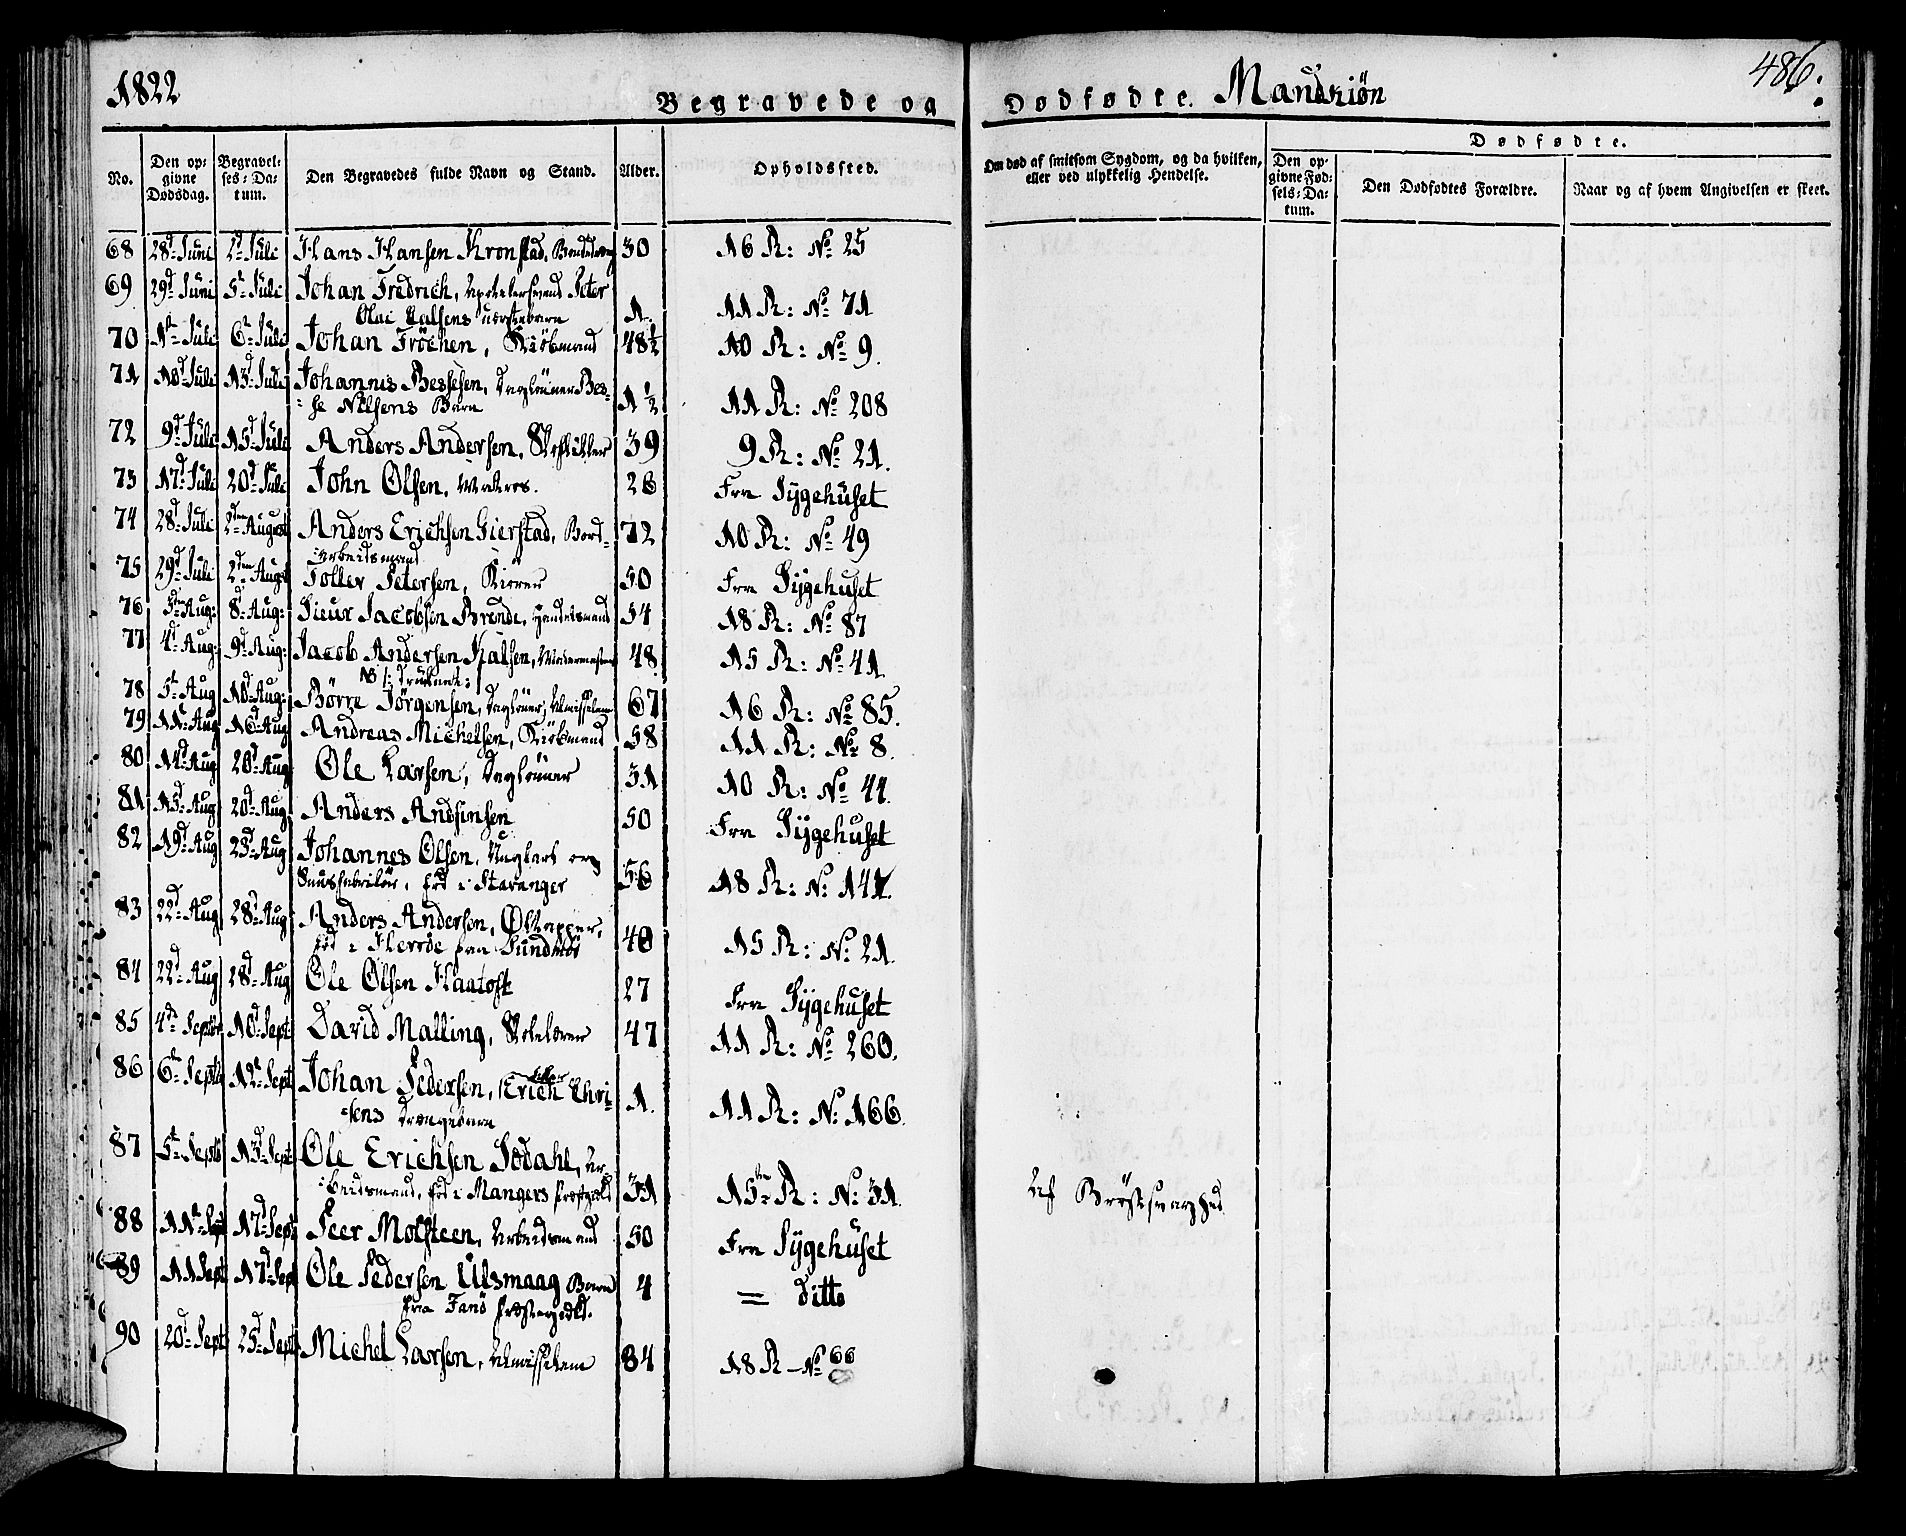 1822
Begravede og Dødfødte. Mandkiøn
486.
No.
Den opgivne Dødsdag.
Begravelses-Datum.
Den Begravedes fulde Navn og Stand.
Alder.
Opholdssted.
Om død af smitsom Sygdom, og da hvilken, eller ved ulykkelig Hendelse.
Dødfødte.
Den opgivne Fødsels-Datum.
Den Dødfødtes Forældre.
Naar og af hvem Angivelsen er skeet.
68 28d Juni 2d Juli Hans Hansen Kronstad, 30 16 R: No 25
69 29d Juni 5t Juli Johan Fredrich, Peter
Olai 1. 11 R: No 71
70 1st Juli 6t Juli Johan Fröchen, Kiöbmand 48½ 10 R: No 9.
71 10d Juli 13d Juli Johannis Bessesen, Dagleiner Bes-
se Nilsens Barn 1½ 11 R: No 208
72 9d Juli 15d Juli Anders Andersen, 39 9 R: No 21.
73 17d Juli 20d Juli John Olsen, Matros. 26 Fra Sygehuset
74 28d Juli 2den August Anders Erichsen Gierstad, Bord-
arbeidsmand 72 10 R: No 49
75 29d Juli 2den Aug Toller Petersen, Kiører 50 Fra Sygehuset
76 3den Aug: 8d Aug: Sieur Jacobsen Brende, Handelsmand 54 18 R: No 87
77 4d Aug: 9d Aug: Jacob Andersen Kalsen, 48 15 R: No 41
NB /: druknet :/
78 5t Aug 10d Aug: Børre Jørgensen, Dagleiner, Almisselem 67 16 R: No 85.
79 11t Aug 16d Aug Andreas Michelsen, Kiöbmand 58 11 R: No 8.
80 14d Aug 20d Aug Ole Larsen, Dagleiner 31 10 R: No 44.
81 15d Aug 20d Aug Anders Andsinsen 50 Fra Sygehuset
82 19d Aug 23d Aug Johannes Olsen, og
Snusfabrikör, fød i Stavanger 56 18 R: No: 141.
83 22d Aug 28d Aug Anders Andersen, Øltapper,
fød i Herröe paa Sundmör 40 15 R: No: 21.
84 22d Aug 28d Aug Ole Olsen Haatoft 27 Fra Sygehuset
85 4de Septbr 10d Sept: David Malling, Skolelærer 47 11 R: No 260.
86 6t Septb 12t Sept Johan Pedersen, Erich Chri-
sens Drengebarn 1. 11 R: No: 166.
87 5t Septb 13d Sept Ole Erichsen Sødahl, Ar-
beidsmand, fød i Mangers Præstgield 31 15de R: No: 31. Af Brøstsvaghed
88 11t Sept 17d Sept Peer Molsteen, Arbeidsmand 50 Fra Sygehuset
89 11 Sept 17d Sept Ole Pedersen Ulsmaag Barn
fra Fanö Præstegield. 4 = Ditto
90 20d Sept 25d Sept Michel Larsen, Almisselem 84 18 R – No 66